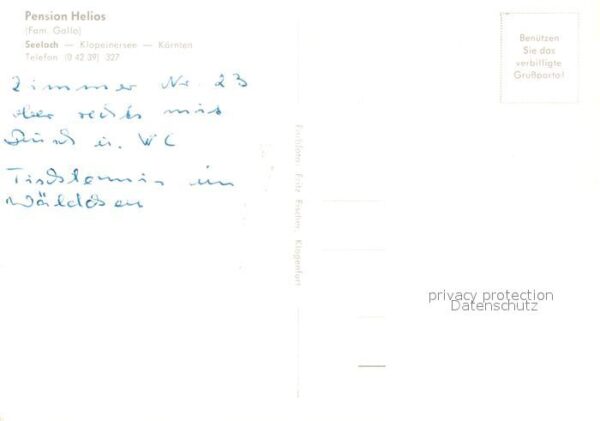 Pension Helios
(Fam. Gallo)
Seelach — Klopeinersee — Kärnten
Telefon (0 42 39) 327
Zimmer Nr. 23
oben rechts mit
Dusch u. WC
Tischtennis im
Wäldchen
Farbfoto: Fritz Fischer, Klagenfurt
Benützen
Sie das
verbilligte
Grußporto!
privacy protection
Datenschutz